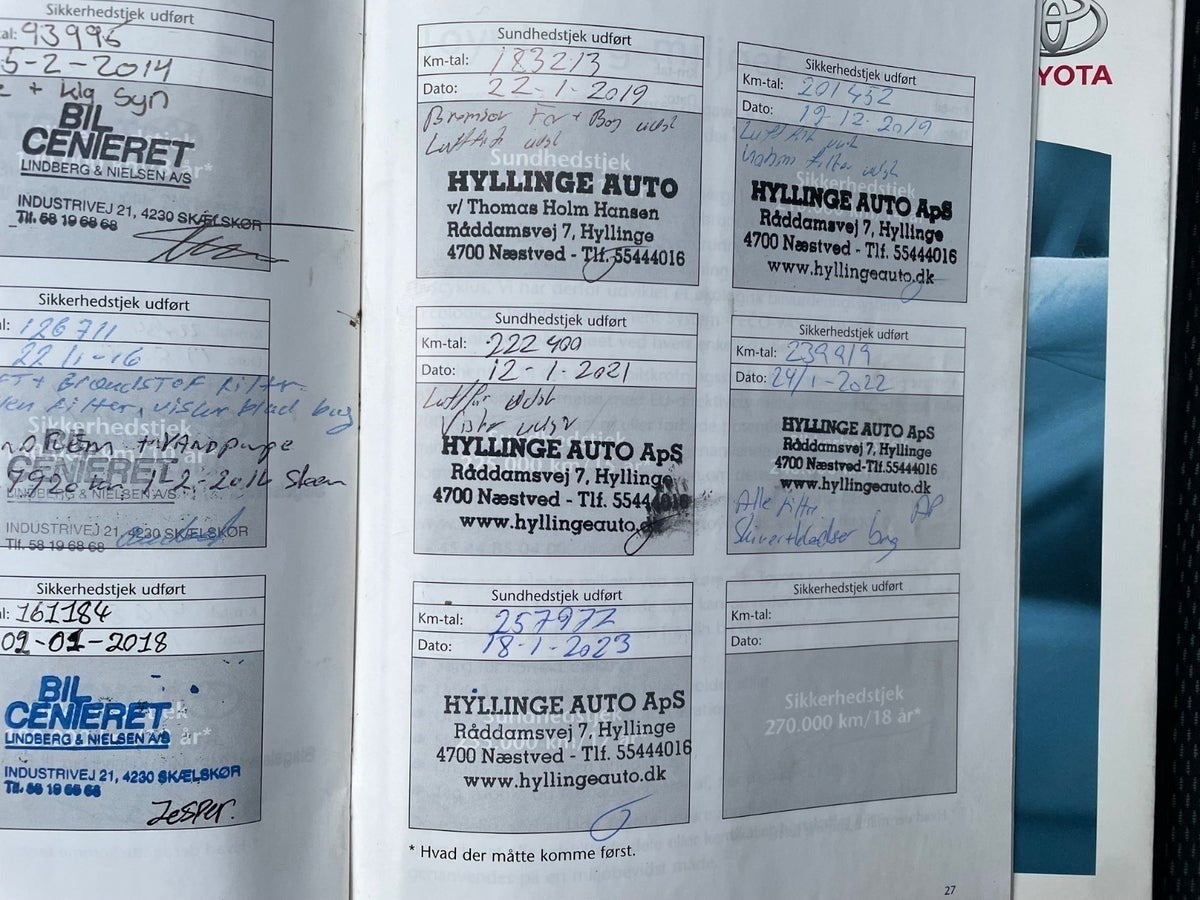 Sikkerhedstjek udført
al: 93996
5-2-2014
e + klg syn
BIL
CENTERET
LINDBERG & NIELSEN A/S
INDUSTRIVEJ 21, 4230 SKÆLSKØR
Tlf. 58 19 68 68
Sikkerhedstjek udført
al: 126711
22/1-16
FT + Brændstof filter.
en filter, visker blad bag
REM + VANDPUMPE
1-2-2016
BIL
CENTERET
LINDBERG & NIELSEN A/S
INDUSTRIVEJ 21, 4230 SKÆLSKØR
Tlf. 58 19 68 68
Sikkerhedstjek udført
al: 161184
09-01-2018
BIL
CENTERET
LINDBERG & NIELSEN A/S
år*
INDUSTRIVEJ 21, 4230 SKÆLSKØR
Tlf. 58 19 68 68
Jesper.
Sundhedstjek udført
Km-tal: 183213
Dato: 22-1-2019
Bremser For + Bag udsk
Luftfilt udsk
Sundhedstjek
HYLLINGE AUTO
v/ Thomas Holm Hansen
Råddamsvej 7, Hyllinge
4700 Næstved - Tlf. 55444016
Sikkerhedstjek udført
Km-tal: 201452
Dato: 19-12-2019
Luftfilt udsk
filter udsk
Sundhedstjek
HYLLINGE AUTO ApS
Råddamsvej 7, Hyllinge
4700 Næstved - Tlf. 55444016
www.hyllingeauto.dk
Sundhedstjek udført
Km-tal: 222400
Dato: 12-1-2021
HYLLINGE AUTO ApS
Råddamsvej 7, Hyllinge
4700 Næstved - Tlf. 55444016
www.hyllingeauto.dk
Sikkerhedstjek udført
Km-tal: 239919
Dato: 24/1-2022
HYLLINGE AUTO ApS
Råddamsvej 7, Hyllinge
4700 Næstved-Tlf.55444016
www.hyllingeauto.dk
Alle filtre
bag
Sundhedstjek udført
Km-tal: 257972
Dato: 18-1-2023
HYLLINGE AUTO ApS
Råddamsvej 7, Hyllinge
4700 Næstved - Tlf. 55444016
www.hyllingeauto.dk
Sikkerhedstjek udført
Km-tal:
Dato:
Sikkerhedstjek
270.000 km/18 år*
* Hvad der måtte komme først.
27
YOTA